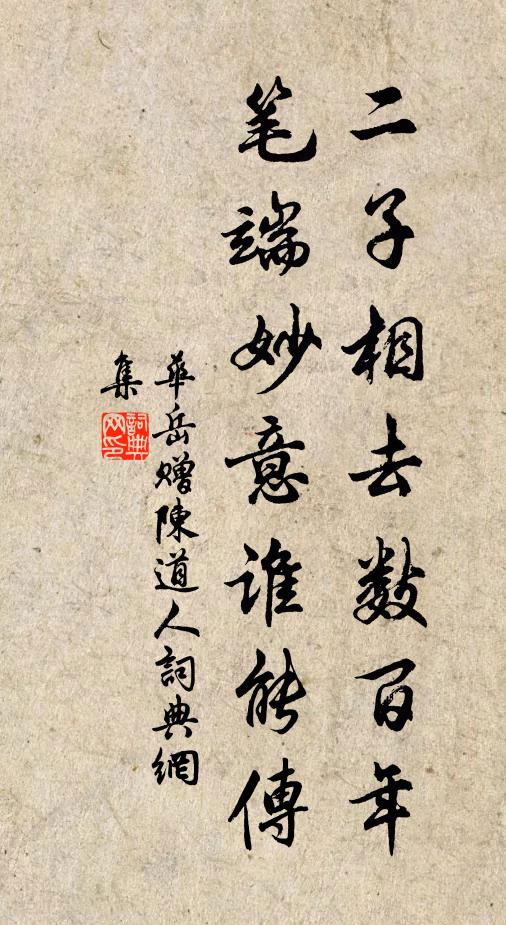 二子相去数百年
笔端妙意谁能傳
華岳贈陳道人詞典網
集
詞典
网印